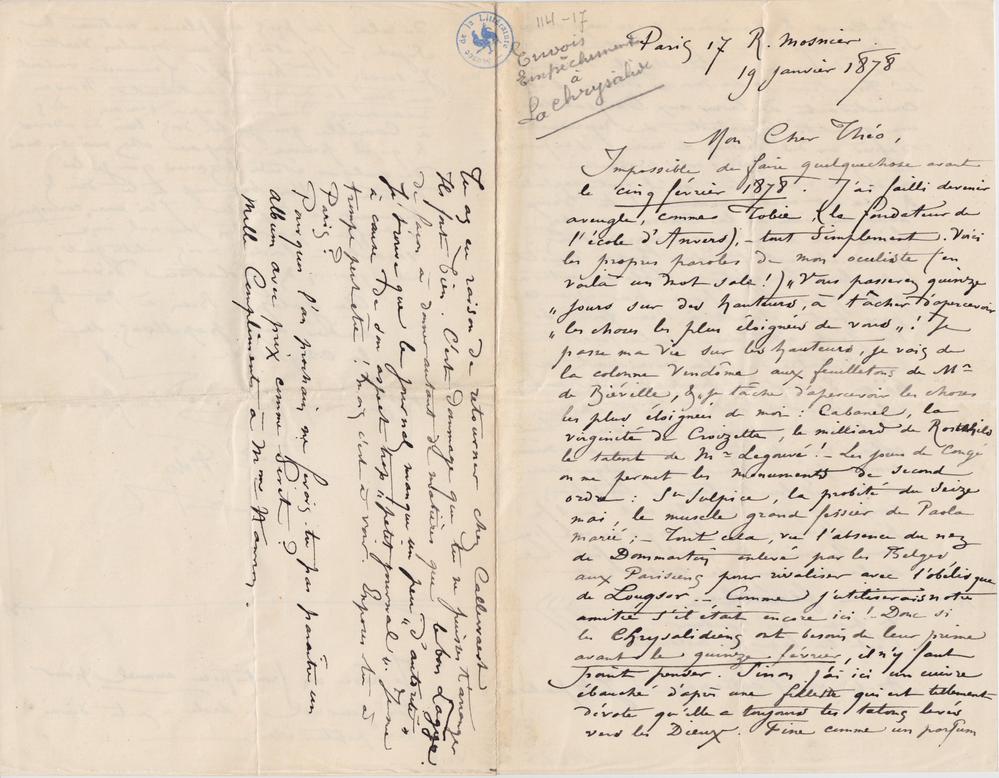 Musée de la Littérature
114-17
Envois
Empêchements
à
La Chrysalide
Paris 17 R. Mosnier.
19 janvier 1878
Mon Cher Théo,
Impossible de faire quelquechose avant
le cinq février 1878. J'ai failli devenir
aveugle, comme Tobie, (le fondateur de
l'école d'Anvers), - tout simplement. Voici
les propres paroles de mon oculiste (en
voilà un mot sale!) „Vous passerez quinze
„jours sur des hauteurs, à tâcher d'apercevoir
„les choses les plus éloignées de vous„! Je
passe ma vie sur les hauteurs, je vais de
la colonne Vendôme aux feuilletons de Mr
de Biéville, & je tâche d'apercevoir les choses
les plus éloignées de moi: Cabanel, la
virginité de Croizette, le milliard de Rothschild
le talent de Mr Legouvé! - Les jours de Congé
on me permet les monuments de second
ordre: St Sulpice, la probité du Seize
mai, le muscle grand fessier de Paola
Marié; - Tout cela, vu l'absence du nez
de Dommartin enlevé par les Belges
aux Parisiens pour rivaliser avec l'obélisque
de Louqsor. - Comme j'utiliserais notre
amitié s'il était encore ici! Donc si
les Chrysalidiens ont besoin de leur prime
avant le quinze février, il n'y faut
point penser. Sinon j'ai ici un cuivre
ébauché d'après une fillette qui est tellement
dévote qu'elle a toujours les tétons levés
vers les Dieux. Fine comme un parfum
Tu as eu raison de retourner chez Callewaert
Ils font bien. C'est dommage que tu ne puisses t'arranger
de façon à donner autant de matières que le bon Lagye.
Je trouve que le journal manque un peu „d'autorité„
à cause de son aspect trop „petit journal„. Je me
trompe peut-être. Mais c'est à voir. Envoies t'en à
Paris?
Pourquoi l'an prochain ne ferais-tu pas paraître un
album avec prix comme Siret?
Mille Compliments à Mme Hannon.